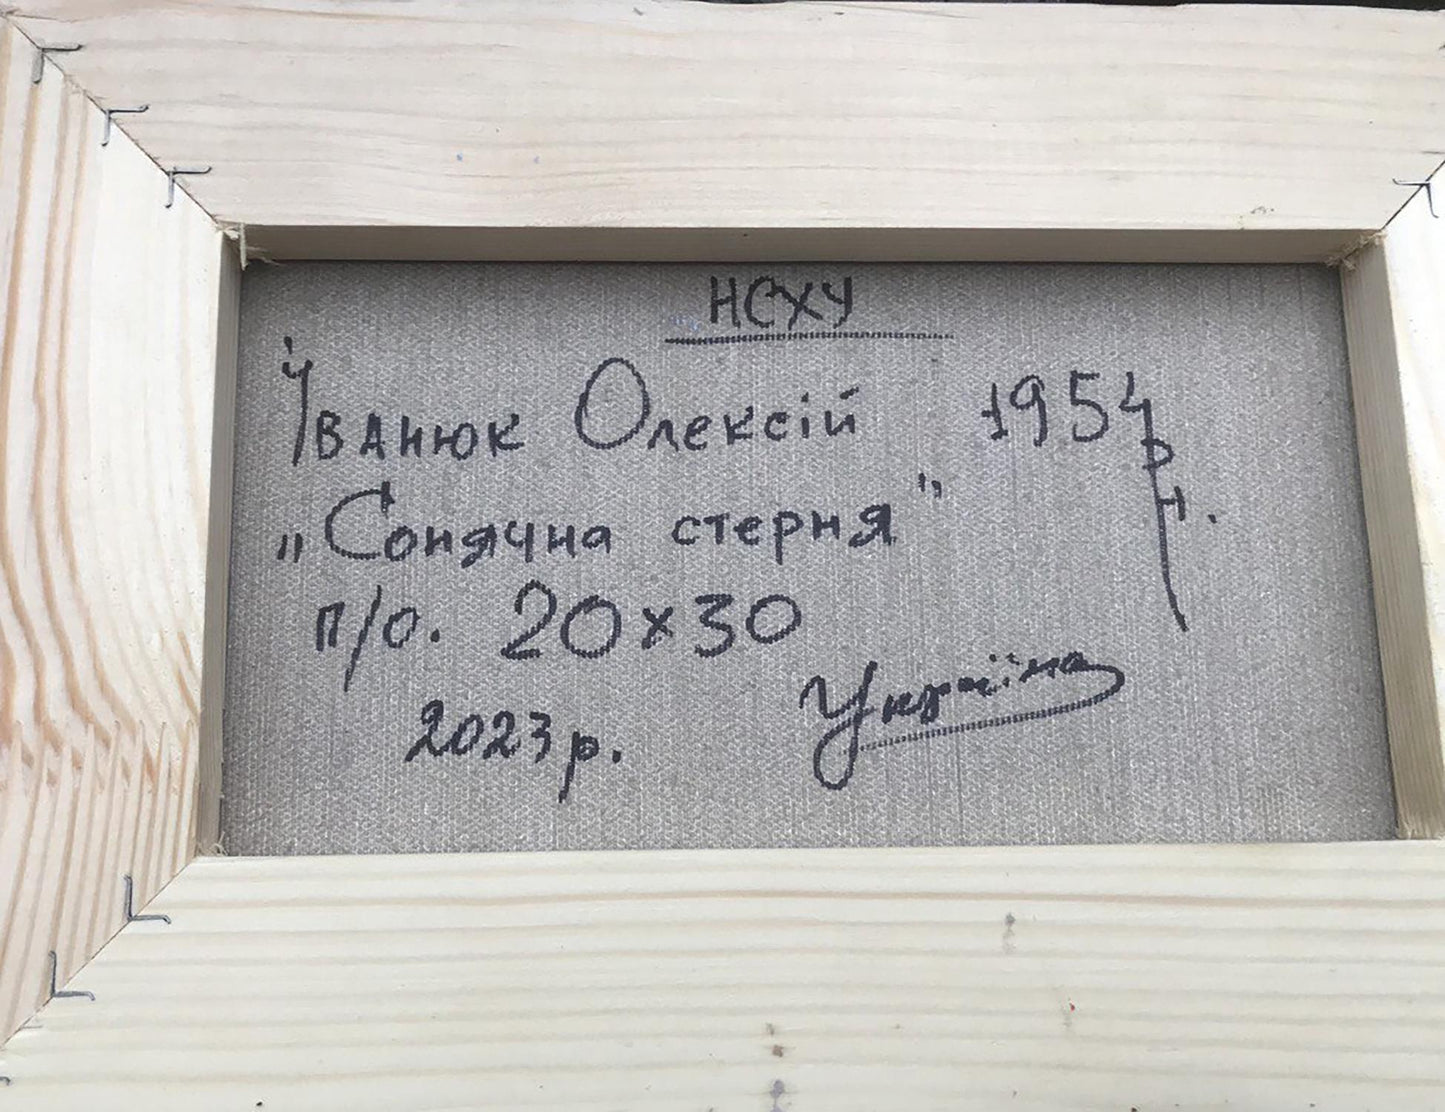 НСХУ
Іванюк Олексій 1954 р.н.
„Сонячна стерня”
п/о. 20х30
2023р.
Україна